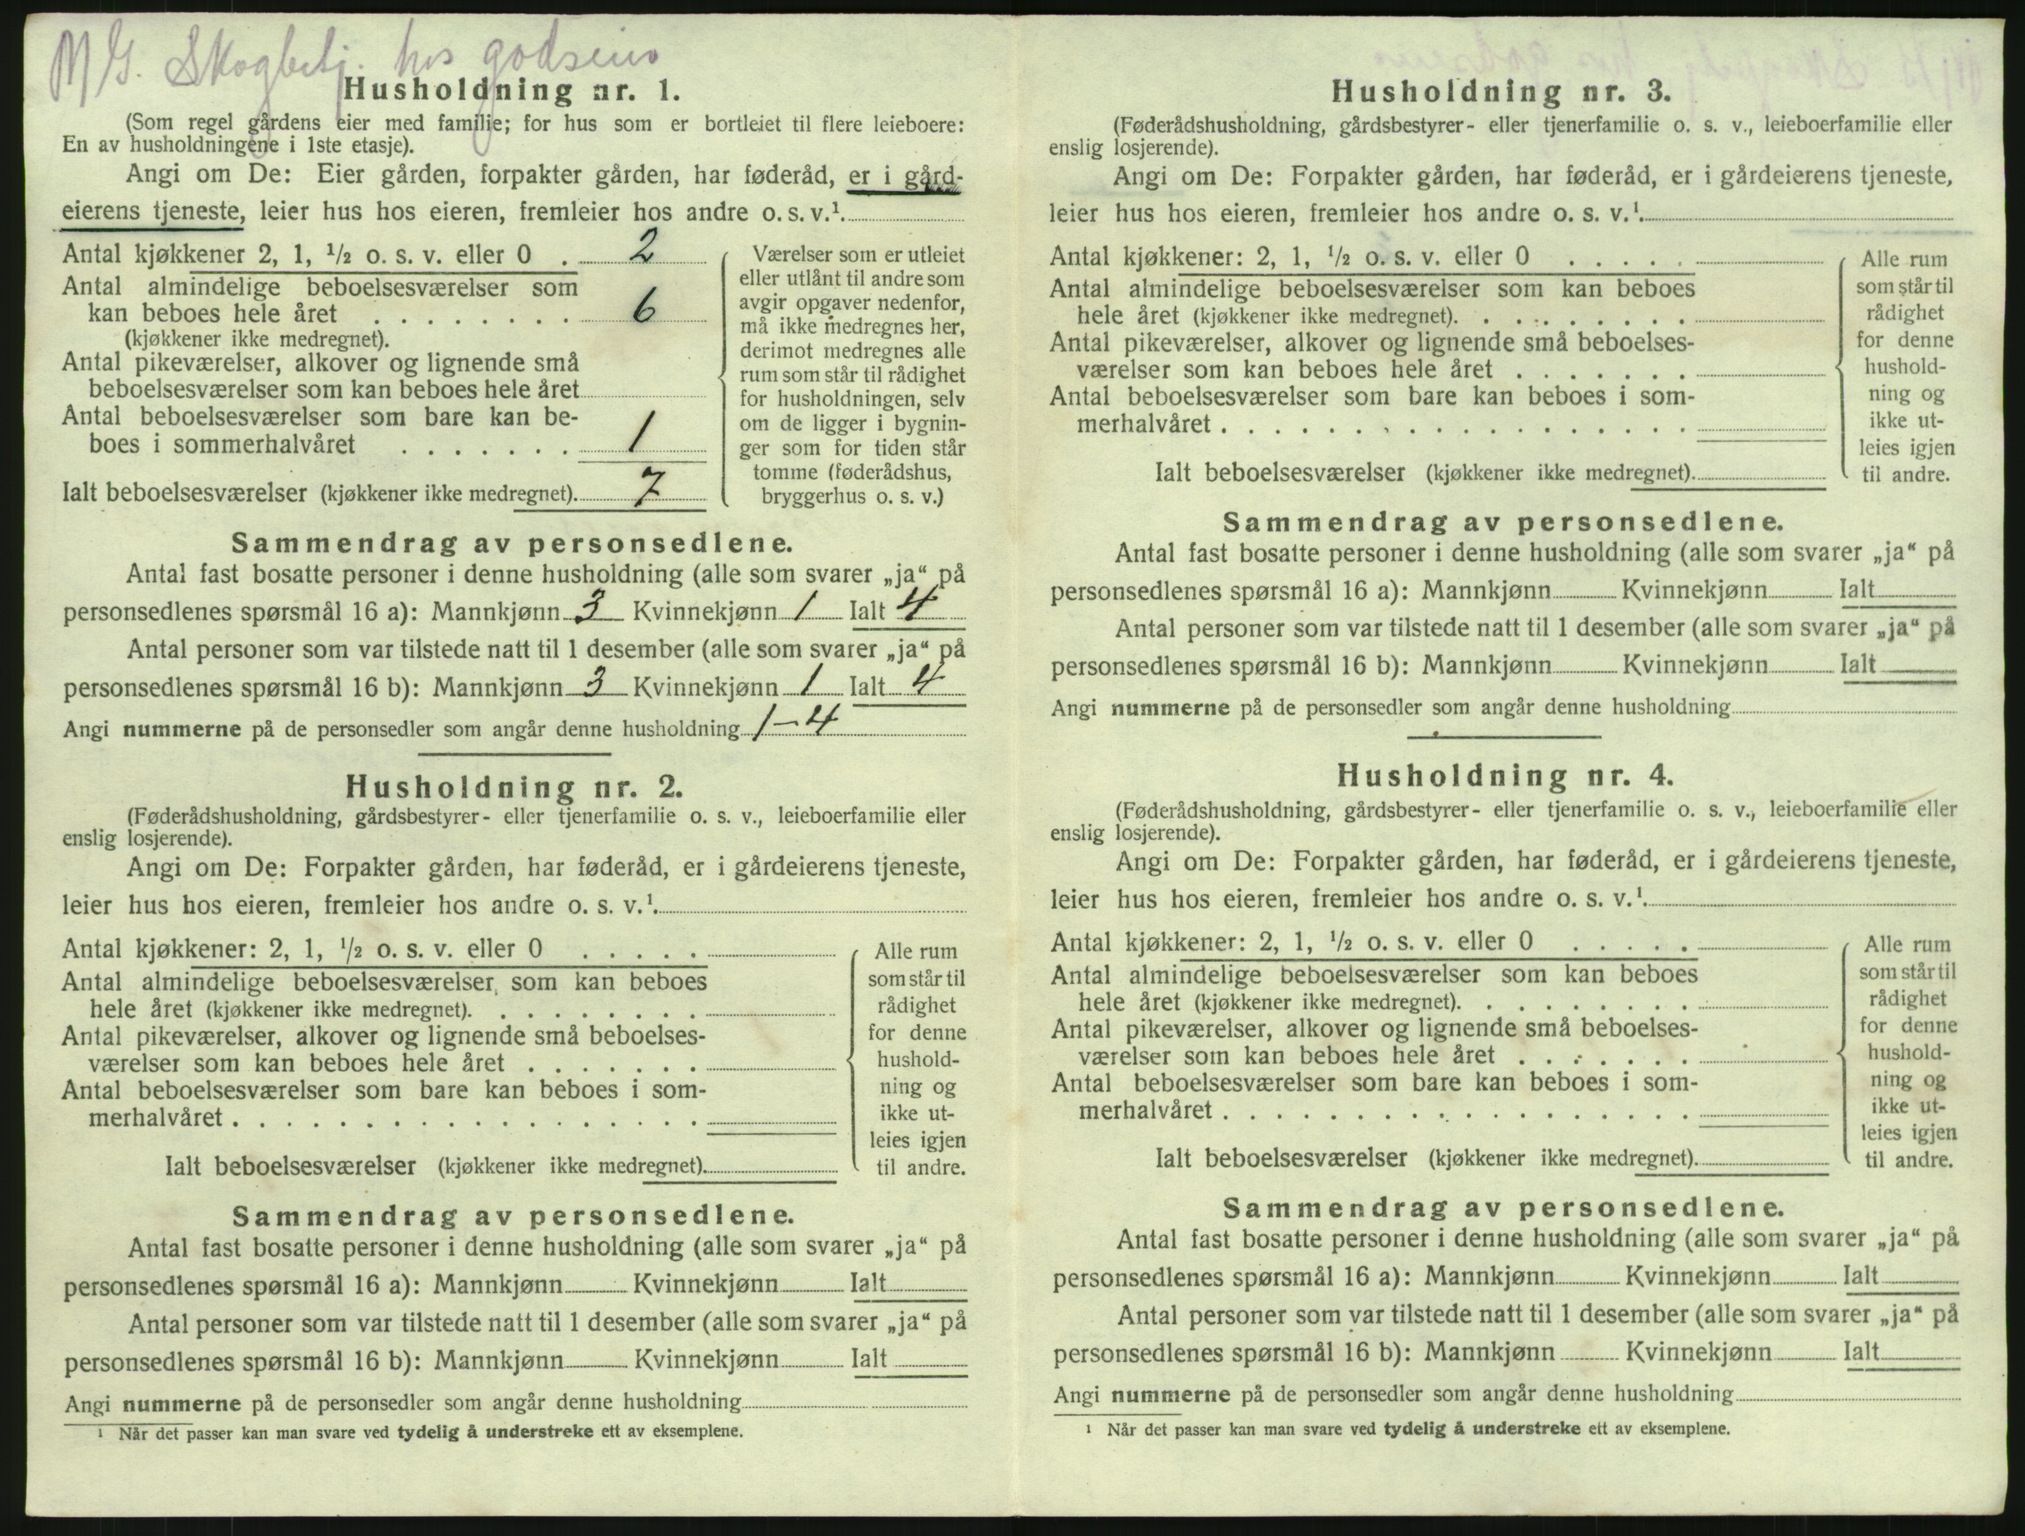 M G. Skogbetj. hos godseier
Husholdning nr. 1.
(Som regel gårdens eier med familje; for hus som er bortleiet til flere leieboere:
En av husholdningene i 1ste etasje).
Angi om De: Eier gården, forpakter gården, har føderåd, er i gård-
eierens tjeneste, leier hus hos eieren, fremleier hos andre o. s. v.¹
Antal kjøkkener 2, 1, ½ o. s. v. eller 0 . 2
Antal almindelige beboelsesværelser som
kan beboes hele året . . . . . . . . 6
(kjøkkener ikke medregnet).
Antal pikeværelser, alkover og lignende små
beboelsesværelser som kan beboes hele året
Antal beboelsesværelser som bare kan be-
boes i sommerhalvåret . . . . . . . 1
Ialt beboelsesværelser (kjøkkener ikke medregnet). 7
Værelser som er utleiet
eller utlånt til andre som
avgir opgaver nedenfor,
må ikke medregnes her,
derimot medregnes alle
rum som står til rådighet
for husholdningen, selv
om de ligger i bygnin-
ger som for tiden står
tomme (føderådshus,
bryggerhus o. s. v.)
Sammendrag av personsedlene.
Antal fast bosatte personer i denne husholdning (alle som svarer „ja“ på
personsedlenes spørsmål 16 a): Mannkjønn 3 Kvinnekjønn 1 Ialt 4
Antal personer som var tilstede natt til 1 desember (alle som svarer „ja“ på
personsedlenes spørsmål 16 b): Mannkjønn 3 Kvinnekjønn 1 Ialt 4
Angi nummerne på de personsedler som angår denne husholdning 1-4
Husholdning nr. 2.
(Føderådshusholdning, gårdsbestyrer- eller tjenerfamilie o. s. v., leieboerfamilie eller
enslig losjerende).
Angi om De: Forpakter gården, har føderåd, er i gårdeierens tjeneste,
leier hus hos eieren, fremleier hos andre o. s. v.¹
Antal kjøkkener: 2, 1, ½ o. s. v. eller 0 . . . . .
Antal almindelige beboelsesværelser som kan beboes
hele året (kjøkkener ikke medregnet). . . . . . . . .
Antal pikeværelser, alkover og lignende små beboelses-
værelser som kan beboes hele året . . . . . . .
Antal beboelsesværelser som bare kan beboes i som-
merhalvåret . . . . . . . . . . . . . . . . . .
Ialt beboelsesværelser (kjøkkener ikke medregnet).
Alle rum
som står til
rådighet
for denne
hushold-
ning og
ikke ut-
leies igjen
til andre.
Sammendrag av personsedlene.
Antal fast bosatte personer i denne husholdning (alle som svarer „ja“ på
personsedlenes spørsmål 16 a): Mannkjønn Kvinnekjønn Ialt
Antal personer som var tilstede natt til 1 desember (alle som svarer „ja“ på
personsedlenes spørsmål 16 b): Mannkjønn Kvinnekjønn Ialt
Angi nummerne på de personsedler som angår denne husholdning
¹ Når det passer kan man svare ved tydelig å understreke ett av eksemplene.
Husholdning nr. 3.
(Føderådshusholdning, gårdsbestyrer- eller tjenerfamilie o. s. v., leieboerfamilie eller
enslig losjerende).
Angi om De: Forpakter gården, har føderåd, er i gårdeierens tjeneste,
leier hus hos eieren, fremleier hos andre o. s. v.¹
Antal kjøkkener: 2, 1, ½ o. s. v. eller 0 . . . . .
Antal almindelige beboelsesværelser som kan beboes
hele året (kjøkkener ikke medregnet). . . . . . . . .
Antal pikeværelser, alkover og lignende små beboelses-
værelser som kan beboes hele året . . . . . . .
Antal beboelsesværelser som bare kan beboes i som-
merhalvåret . . . . . . . . . . . . . . . . . .
Ialt beboelsesværelser (kjøkkener ikke medregnet).
Alle rum
som står til
rådighet
for denne
hushold-
ning og
ikke ut-
leies igjen
til andre.
Sammendrag av personsedlene.
Antal fast bosatte personer i denne husholdning (alle som svarer „ja“ på
personsedlenes spørsmål 16 a): Mannkjønn Kvinnekjønn Ialt
Antal personer som var tilstede natt til 1 desember (alle som svarer „ja“ på
personsedlenes spørsmål 16 b): Mannkjønn Kvinnekjønn Ialt
Angi nummerne på de personsedler som angår denne husholdning
Husholdning nr. 4.
(Føderådshusholdning, gårdsbestyrer- eller tjenerfamilie o. s. v., leieboerfamilie eller
enslig losjerende).
Angi om De: Forpakter gården, har føderåd, er i gårdeierens tjeneste,
leier hus hos eieren, fremleier hos andre o. s. v.¹
Antal kjøkkener: 2, 1, ½ o. s. v. eller 0 . . . . .
Antal almindelige beboelsesværelser som kan beboes
hele året (kjøkkener ikke medregnet). . . . . . . . .
Antal pikeværelser, alkover og lignende små beboelses-
værelser som kan beboes hele året . . . . . . .
Antal beboelsesværelser som bare kan beboes i som-
merhalvåret . . . . . . . . . . . . . . . . . .
Ialt beboelsesværelser (kjøkkener ikke medregnet).
Alle rum
som står til
rådighet
for denne
hushold-
ning og
ikke ut-
leies igjen
til andre.
Sammendrag av personsedlene.
Antal fast bosatte personer i denne husholdning (alle som svarer „ja“ på
personsedlenes spørsmål 16 a): Mannkjønn Kvinnekjønn Ialt
Antal personer som var tilstede natt til 1 desember (alle som svarer „ja“ på
personsedlenes spørsmål 16 b): Mannkjønn Kvinnekjønn Ialt
Angi nummerne på de personsedler som angår denne husholdning
¹ Når det passer kan man svare ved tydelig å understreke ett av eksemplene.